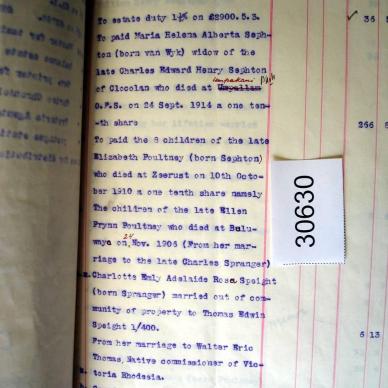 To estate duty 1½% on £2900.5.3. 36 5
To paid Maria Helena Alberta Seph-
ton (born van Wyk) widow of the
late Charles Edward Henry Sephton
of Clocolan who died at
O.F.S. on 24 Sept. 1914 a one ten-
-th share 266 8
To paid the 8 children of the late
Elizabeth Poultney (born Sephton)
who died at Zeerust on 10th Octo-
ber 1910 a one tenth share namely
The children of the late Ellen
Frynn Poultney who died at Bulu-
wayo on 24 Nov. 1906 (From her mar-
riage to the late Charles Spranger)
Charlotte Emly Adelaide Rosa Speight
(born Spranger) married out of com-
munity of property to Thomas Edwin
Speight 1/400. 6 13
From her marriage to Walter Eric
Thomas, Native commissioner of Vic-
toria Rhodesia.
30630